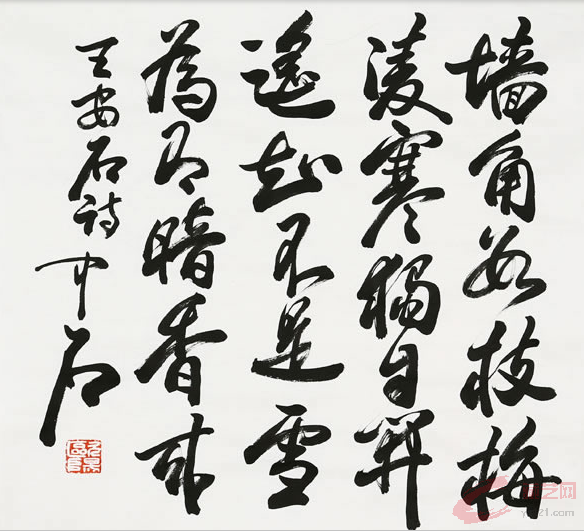 墙角数枝梅
凌寒獨自開
遥知不是雪
為有暗香来
王安石詩 中石